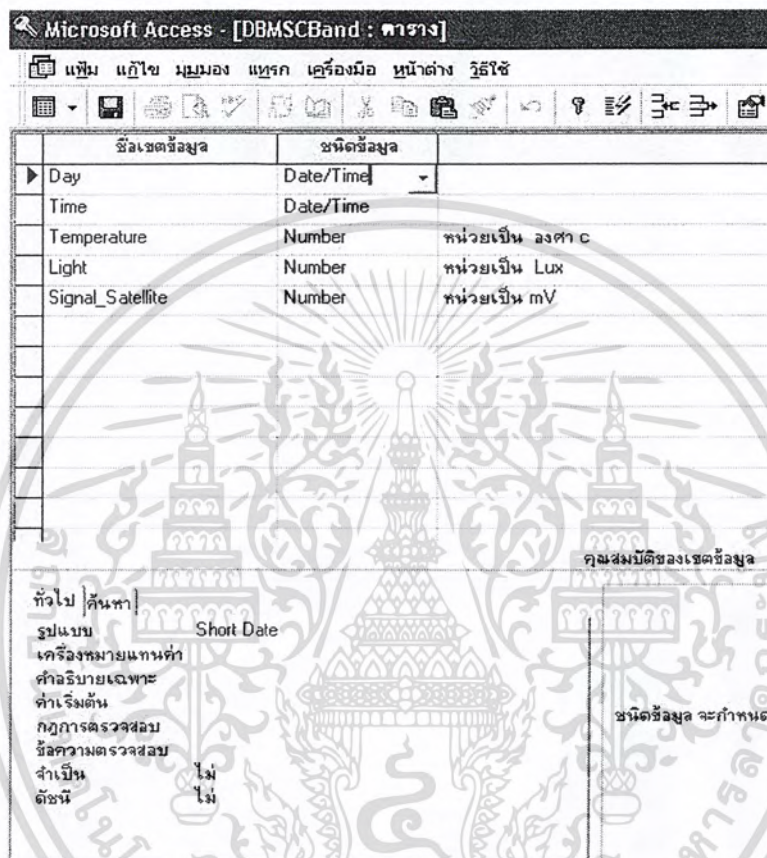 Microsoft Access - [DBMSCBand : ตาราง]
แฟ้ม แก้ไข มุมมอง แทรก เครื่องมือ หน้าต่าง วิธีใช้
ชื่อเขตข้อมูล ชนิดข้อมูล
Day Date/Time
Time Date/Time
Temperature Number หน่วยเป็น องศา c
Light Number หน่วยเป็น Lux
Signal_Satellite Number หน่วยเป็น mV
คุณสมบัติของเขตข้อมูล
ทั่วไป ค้นหา
รูปแบบ Short Date
เครื่องหมายแทนค่า
คำอธิบายเฉพาะ
ค่าเริ่มต้น
กฎการตรวจสอบ
ข้อความตรวจสอบ
จำเป็น ไม่
ดัชนี ไม่
ชนิดข้อมูล จะกำหนด